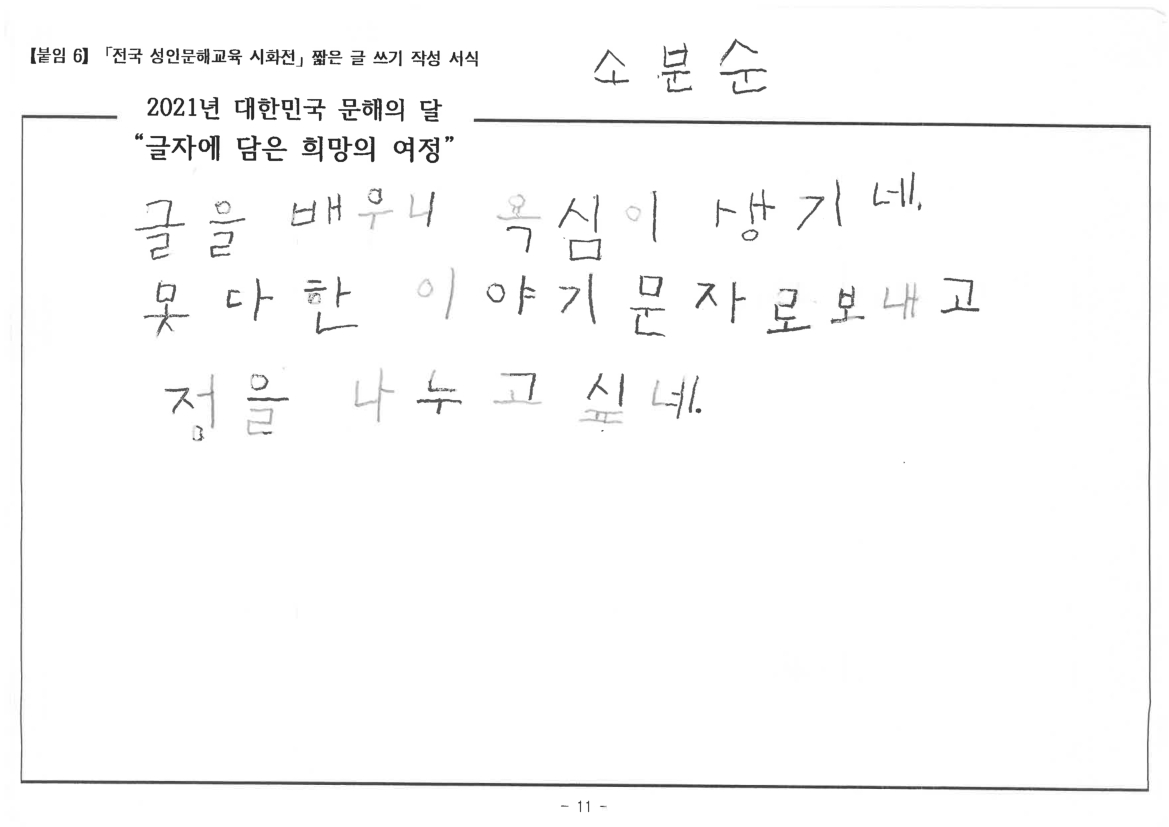 【붙임 6】 「전국 성인문해교육 시화전」 짧은 글 쓰기 작성 서식
소분순
2021년 대한민국 문해의 달
“글자에 담은 희망의 여정”
글을 배우니 욕심이 생기네.
못다한 이야기 문자로보내고
정을 나누고 싶네.
- 11 -